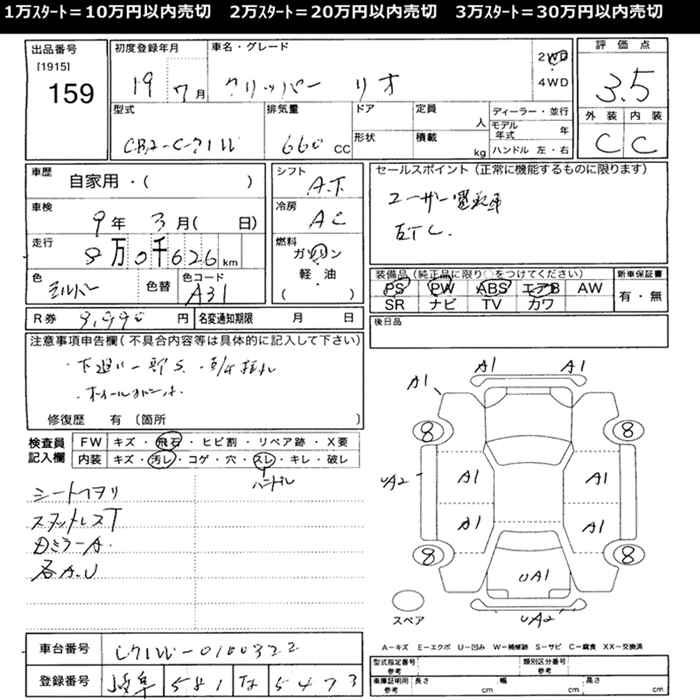 1万ｽﾀｰﾄ＝10万円以内売切　2万ｽﾀｰﾄ＝20万円以内売切　3万ｽﾀｰﾄ＝30万円以内売切
出品番号
[1915]
159
初度登録年月
19 7月
車名・グレード
クリッパー リオ
2WD
4WD
評価点
3.5
外装 内装
C C
型式
排気量
660 CC
ドア
形状
定員 人
積載 kg
ディーラー・並行
モデル年式 年
ハンドル 左・右
車歴
自家用・( )
車検
9年 3月( 日)
走行
8万0千626km
色
シルバー
色替
色コード
A31
シフト
A.T
冷房
AC
燃料
ガソリン
軽・油
( )
セールスポイント(正常に機能するものに限ります)
ユーザー買取車
ETC.
装備品(純正品に限り○をつけてください)
PS PW ABS エアB AW
SR ナビ TV カワ
新車保証書
有・無
R券 9,990円
名変通知期限 月 日
後日品
注意事項申告欄(不具合内容等は具体的に記入して下さい)
修復歴 有(箇所 )
検査員記入欄
FW キズ・飛石・ヒビ割・リペア跡・X要
内装 キズ・汚レ・コゲ・穴・スレ・キレ・破レ
ハンドル
スタッドレスT
各A.U
A1 A1 A1
8 8
UA2 A1 A1 A2
A1 A1
8 8
UA1
UA2
スペア
A－キズ E－エクボ U－凹み W－補修跡 S－サビ C－腐食 XX－交換済
車台番号
U71W-0100322
登録番号
岐阜 581 な 5473
型式指定番号
参考
類別区分番号
参考
車庫証明用
参考
長さ cm 幅 cm 高さ cm